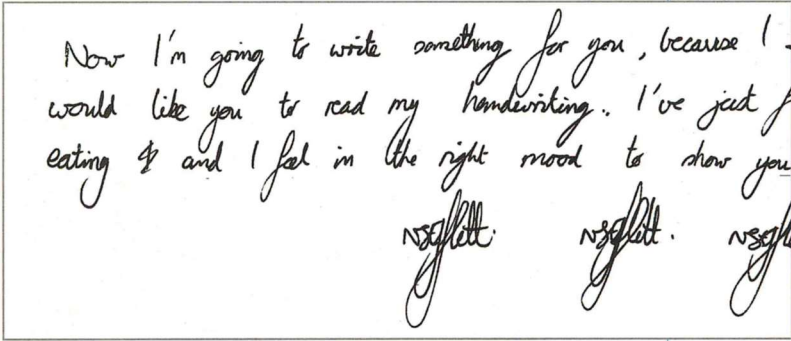 Now I'm going to write something for you, because I
would like you to read my handwriting. I've just
eating and I feel in the right mood to show you